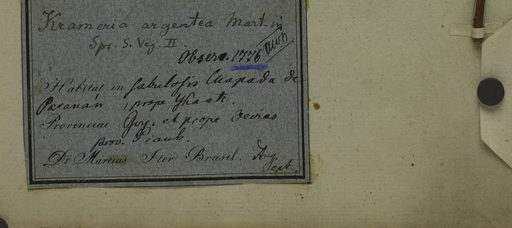 Krameria argentea Mart. in
Spr. S. Veg. II.
Observ.
Habitat in sabulosis Chapada de
Paranán, prope
Provinciae Goy. et prope Oeiras
prov. Piauh.
Dr. Martius Iter Brasil. Aug.
Sept.